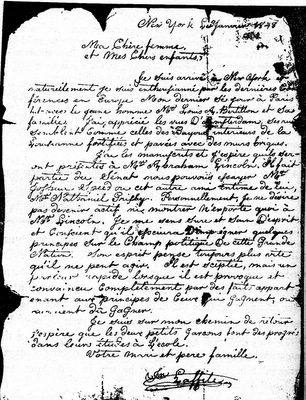 New York 6 Janvier 1848
Ma Chère femme
et Mes Chers enfants,
Je suis arrivé à New York et
naturellement je suis enthousiasmé par les dernières Con
férences en Europe Mon dernier Séjour à Paris
avec le jeune homme Mr Louis et sa
famille J'ai apprécié les rues d'Amsterdam, ses rues
semblent Comme celles des Bayous intérieurs de la
Louisianne fortifiées et pavées avec des murs briques.
J'ai les manuscrits et j'espère qu'ils ser
ont présentés à Mr Abraham Lincoln. Il fait
partie du Sénat nous pouvons essayer Mr
Joshua Speed ou cet autre ami intime de lui,
Mr Nathaniel Personnellement, je ne désire
pas devenir actif ni montrer N'importe quoi à
Mr Lincoln. Je me sens Sur de Son Esprit
et Confient qu'il
principes Sur le Champ politique De cette Grande
Nature. Son esprit pense toujours plus vite
qu'il ne peut agir. Il est sceptic, mais un
rapide lorsque il est provoqué et
convaincu Complètement par des faits appart
enant aux principes de Ceux qui Gagnent, ou
viennent du Gagner.
Je suis sur mon chemin de retour
J'espère que les deux petits Garçons font des progrès
dans leurs études à l'école.
Votre Mari et père famille.
Laffite